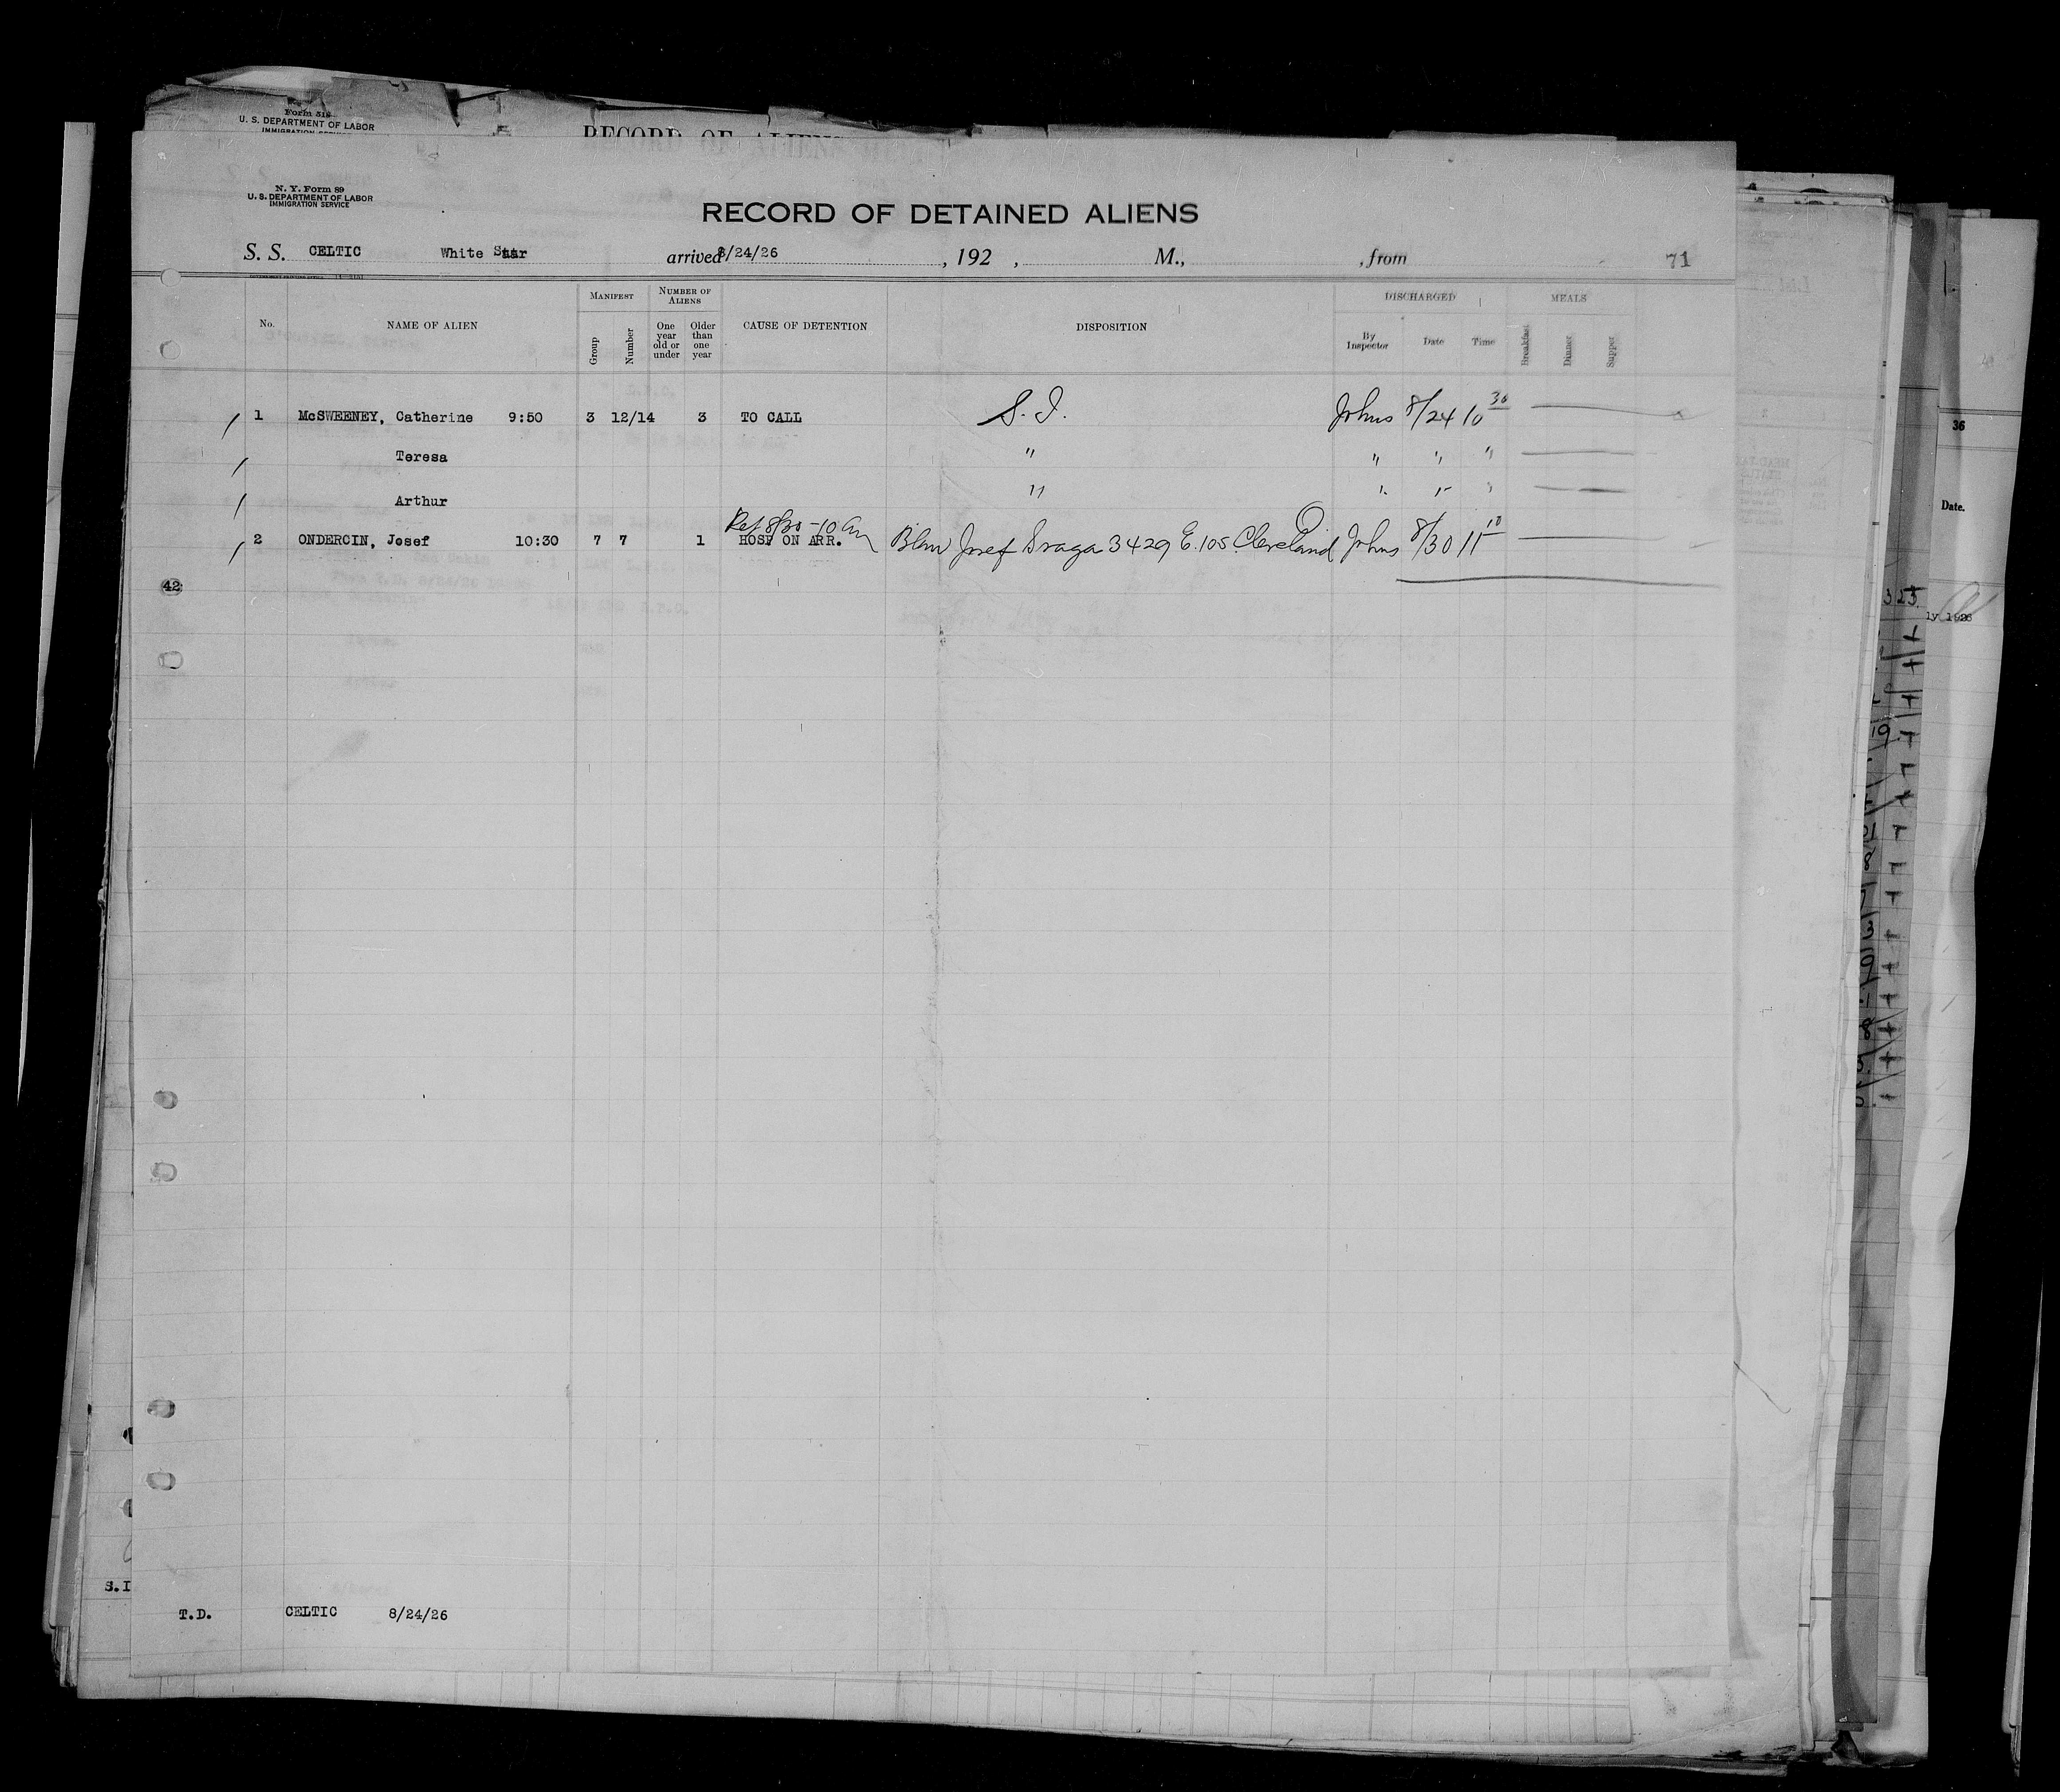 Form 518
U. S. DEPARTMENT OF LABOR
IMMIGRATION SERVICE
RECORD OF ALIENS
N. Y. Form 89
U. S. DEPARTMENT OF LABOR
IMMIGRATION SERVICE
RECORD OF DETAINED ALIENS
S. S. CELTIC White Star arrived 8/24/26 , 192 , M., , from 71
No. NAME OF ALIEN MANIFEST Group Number NUMBER OF ALIENS One year old or under Older than one year CAUSE OF DETENTION DISPOSITION DISCHARGED By Inspector Date Time MEALS Breakfast Dinner Supper
1 McSWEENEY, Catherine 9:50 3 12/14 3 TO CALL S. I. Johns 8/24 10 30
Teresa " " " "
Arthur " " " "
Ref 8/30 - 10 am
2 ONDERCIN, Josef 10:30 7 7 1 HOSP ON ARR. Josef Draga 3429 E. 105 Cleveland O Johns 8/30 11 10
42
36
Date.
325
S.I
T.D. CELTIC 8/24/26